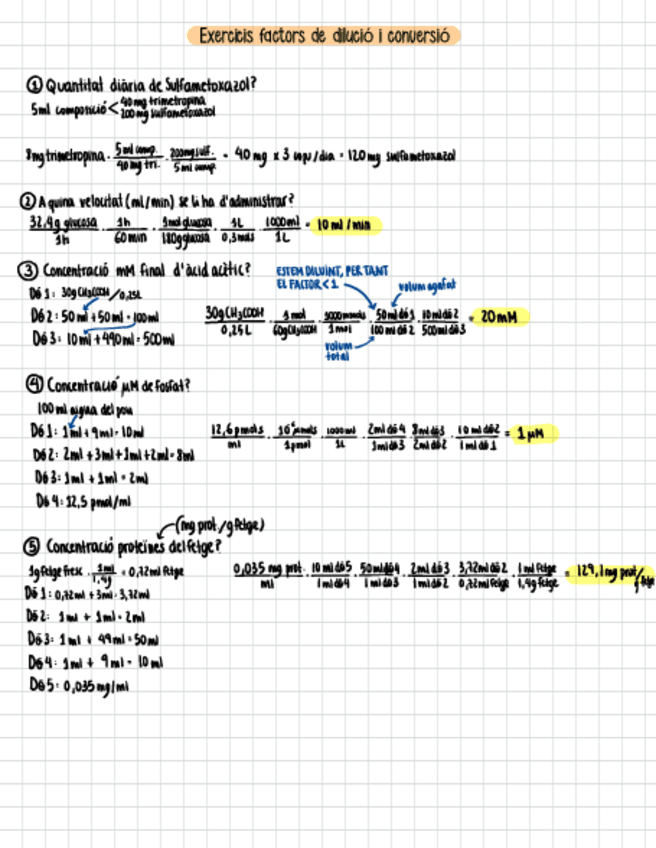 Exercicis factors de dilució i conversió
① Quantitat diària de Sulfametoxazol?
5ml composició < 40mg trimetropina
200mg sulfametoxazol
8mg trimetropina · 5ml comp. / 40mg tri. · 200mg sulf. / 5ml comp. = 40 mg x 3 cops/dia = 120mg sulfametoxazol
② A quina velocitat (ml/min) se li ha d'administrar?
32,4g glucosa / 1h · 1h / 60min · 1mol glucosa / 180g glucosa · 1L / 0,3mols · 1000ml / 1L = 10 ml/min
③ Concentració mM final d'àcid acètic?
ESTEM DILUINT, PER TANT
EL FACTOR < 1
volum agafat
Dó 1: 30g CH3COOH / 0,25L
Dó 2: 50 ml + 50 ml = 100ml
Dó 3: 10ml + 490ml = 500ml
30g CH3COOH / 0,25L · 1 mol / 60g CH3COOH · 1000mmols / 1mol · 50ml dó 1 / 100 ml dó 2 · 10ml dó 2 / 500ml dó 3 = 20 mM
volum
total
④ Concentració µM de fosfat?
100 ml aigua del pou
Dó 1: 1ml + 9ml = 10ml
Dó 2: 2ml + 3ml + 1ml + 2ml = 8ml
Dó 3: 1ml + 1ml = 2ml
Dó 4: 12,5 pmol/ml
1000ml / 1L · 2ml dó 4 / 1ml dó 3 · 8ml dó 3 / 2ml dó 2 · 10 ml dó 2 / 1ml dó 1 = 1 µM
⑤ Concentració proteïnes del fetge?
(mg prot./g fetge)
1g fetge fresc · 1ml / 1,4g = 0,72ml fetge
Dó 1: 0,72ml + 3ml = 3,72ml
Dó 2: 1ml + 1ml = 2ml
Dó 3: 1ml + 49ml = 50ml
Dó 4: 1ml + 9ml = 10ml
Dó 5: 0,035 mg/ml
0,035 mg prot. / ml · 10 ml dó 5 / 1ml dó 4 · 50ml dó 4 / 1ml dó 3 · 2ml dó 3 / 1ml dó 2 · 3,72ml dó 2 / 0,72ml fetge · 1ml fetge / 1,4g fetge = 129,1mg prot/g fetge